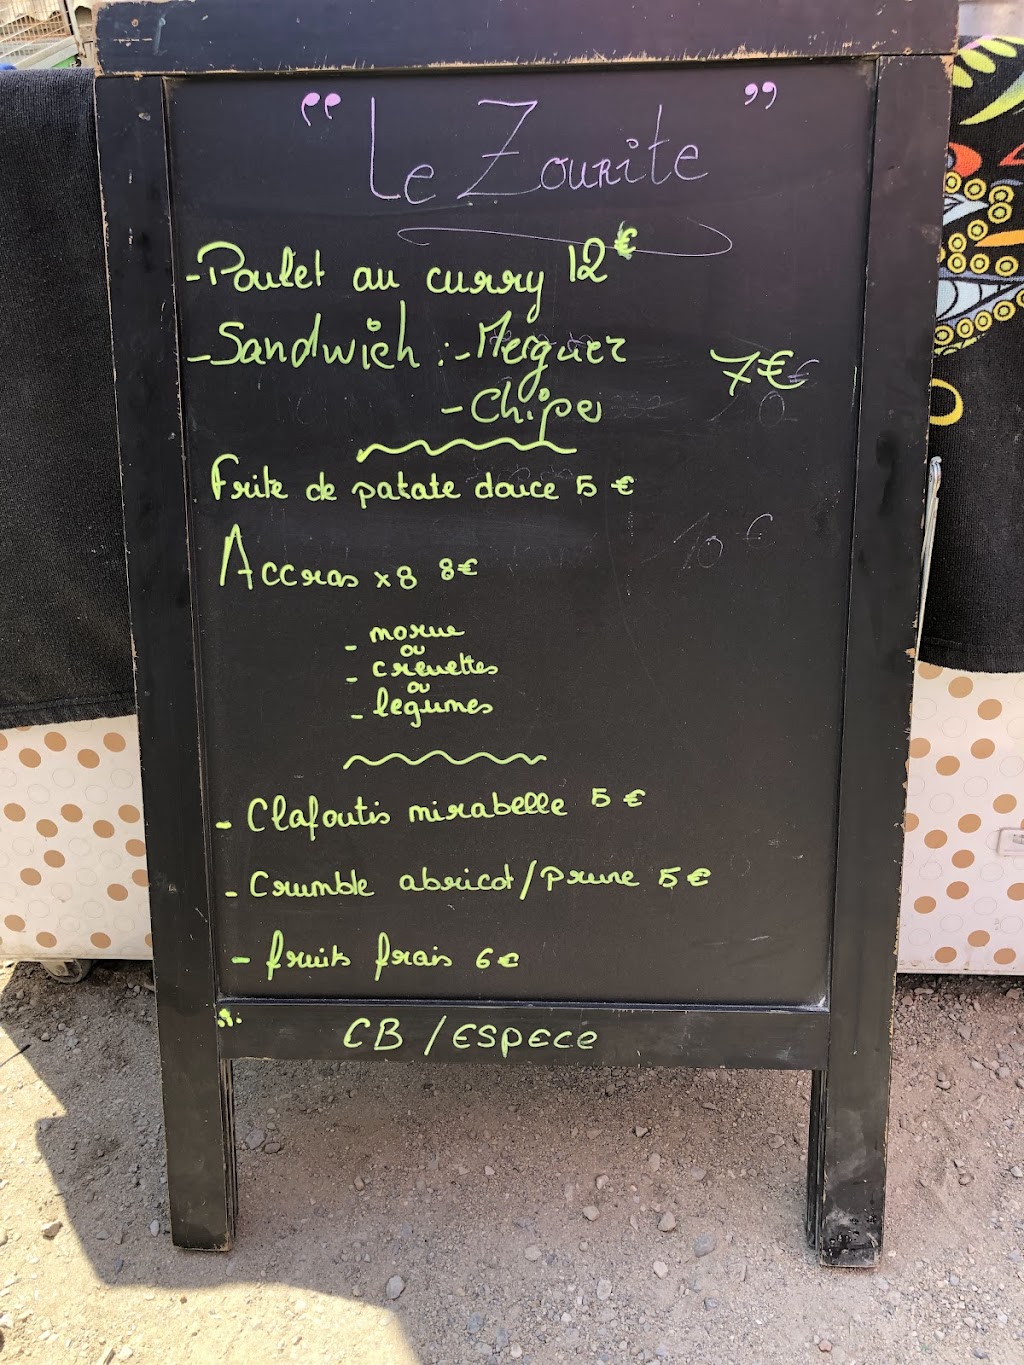 "Le Zourite"
- Poulet au curry 12€
- Sandwich : - Merguez 7€
- Chipo
Frite de patate douce 5 €
Accras x8 8€
- morue
ou
- crevettes
ou
- légumes
- Clafoutis mirabelle 5 €
- Crumble abricot/prune 5 €
- fruits frais 6€
CB / ESPECE